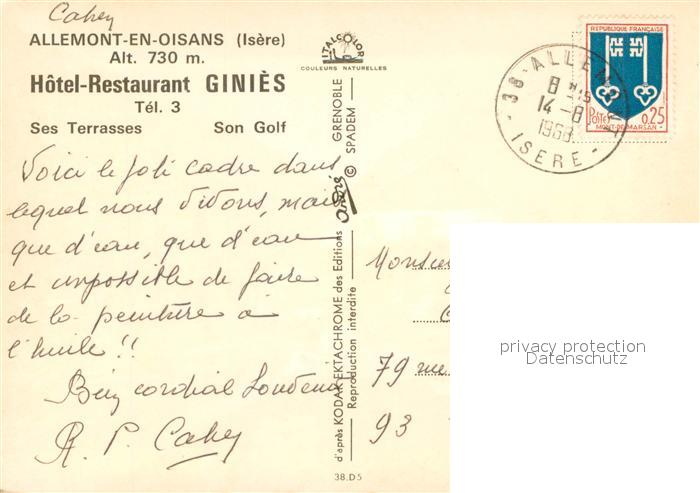 Cahey
ALLEMONT-EN-OISANS (Isère)
Alt. 730 m.
Hôtel-Restaurant GINIÈS
Tél. 3
Ses Terrasses Son Golf
Voici le joli cadre dans
lequel nous vivons, mais
que d'eau, que d'eau
et impossible de faire
de la peinture à
l'huile !!
Bien cordial
R. P. Cahey
ITALCOLOR
COULEURS NATURELLES
d'après KODAK EKTACHROME des Editions André © GRENOBLE
Reproduction interdite SPADEM
38.D5
REPUBLIQUE FRANÇAISE
POSTES 0,25
MONT-DE-MARSAN
38-ALLEMONT
14-8
1968
ISERE
Monsieur
79 rue
93
privacy protection
Datenschutz